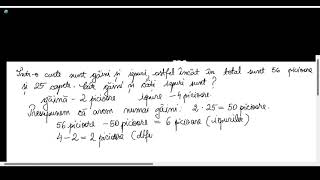 Într-o curte sunt găini și iepuri, astfel încât în total sunt 56 picioare
și 25 capete. Câte găini și câți iepuri sunt?
găină - 2 picioare iepure - 4 picioare.
Presupunem că avem numai găini. 2·25 = 50 picioare.
56 picioare - 50 picioare = 6 picioare (iepurilor)
4-2=2 picioare (dife